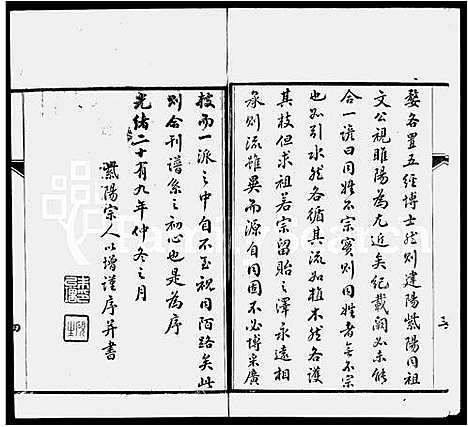 婺各置五經博士然則建陽紫陽同祖
文公視睢陽為尤近矣紀載洵必未能
合一諺曰同姓不宗實則同姓者無不宗
也如引水然各循其流如植木然各護
其枝但求祖若宗留貽之澤永遠相
承則流雖異而源自同固不必博采廣
三
技而一派之中自不至視同陌路矣此
則合刊譜系之初心也是為序
光緒二十有九年仲冬之月
紫陽宗人以增謹序并書
四
FamilySearch